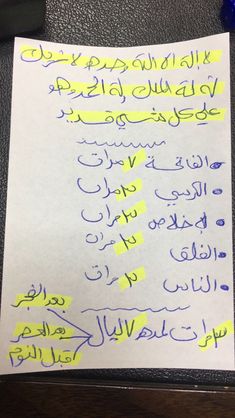 لا إله إلا الله وحده لا شريك
له له الملك وله الحمد وهو
على كل شيء قدير
الفاتحة ٧ مرات
الكرسي ٣ مرات
الإخلاص ٣ مرات
الفلق ٣ مرات
الناس ٣ مرات
بعد الفجر
٣ مرات لمدة ٧ ليال
بعد العصر
قبل النوم